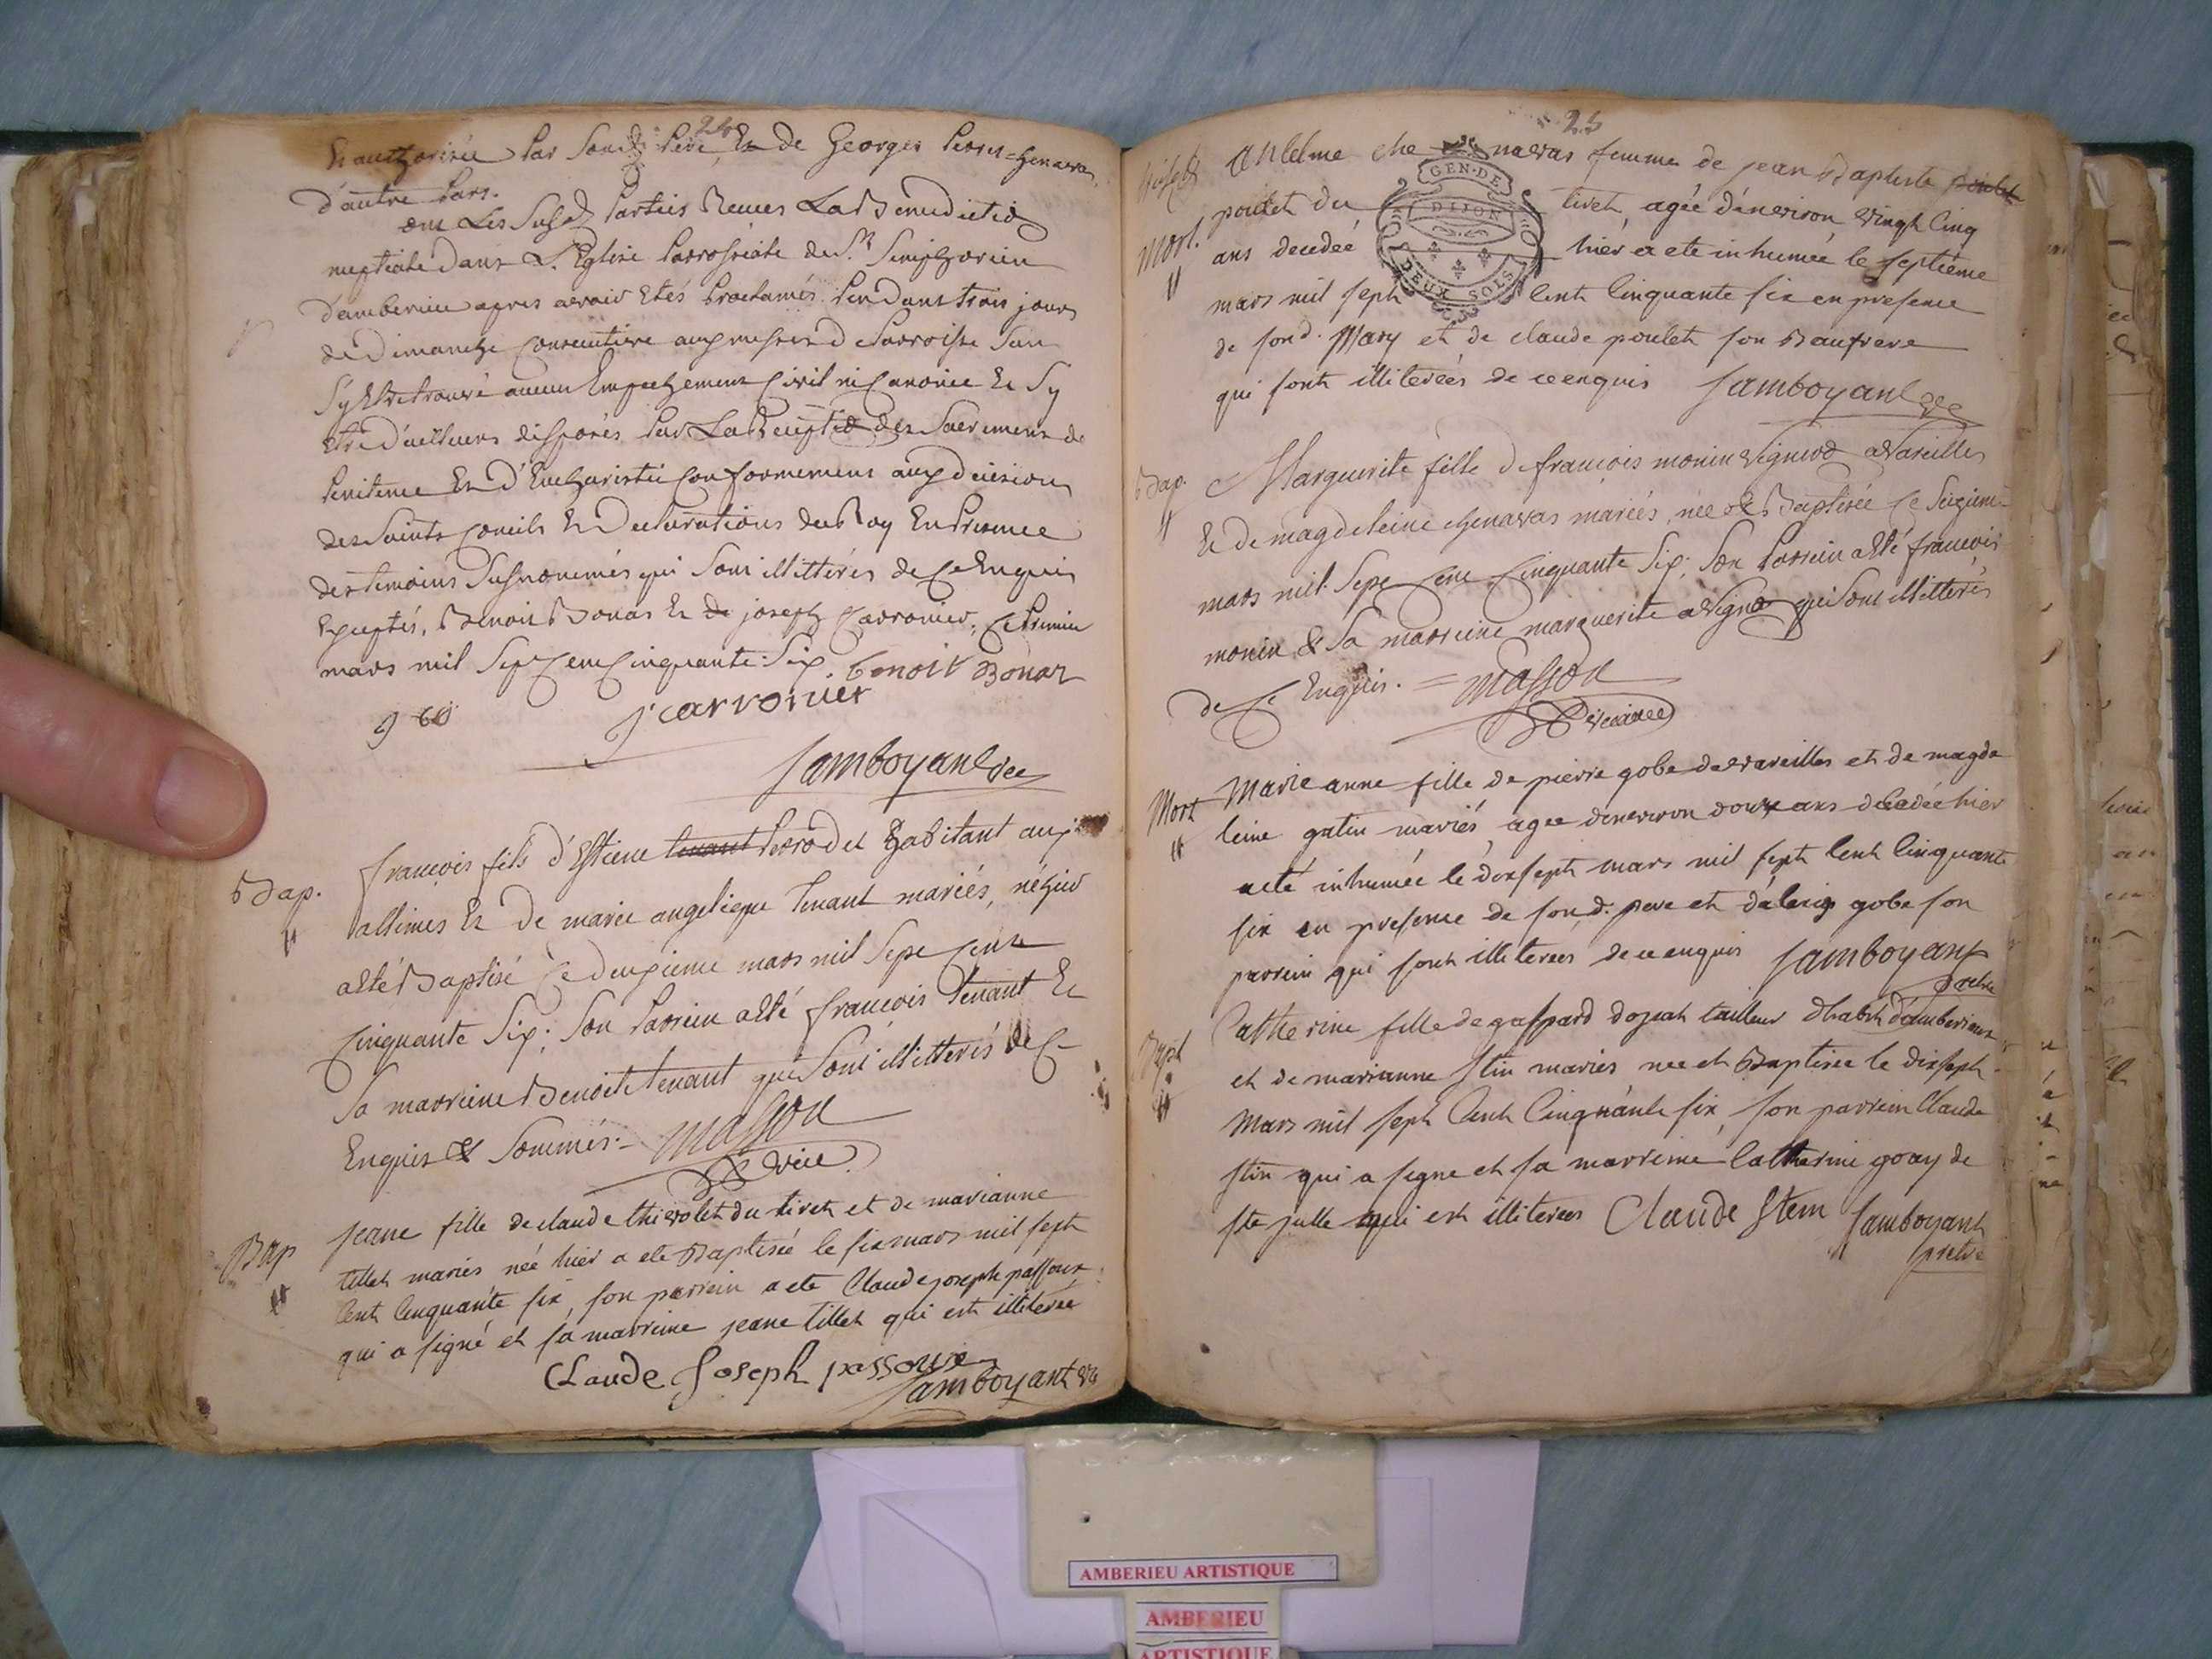 24
Et authorisée Par Sond. Père, Et de Georges Perret=Genavas
d'autre Part.
ont Les Susd. Parties Reçues La Benedictiõ
nuptiale dans L'Eglise Parrossiale de St. Simphorien
d'amberieu apres avoir Etés Proclamés Pendant trois jours
de Dimanche Consecutive aux messes de Parroisse Sans
S'y Etre trouvé aucun Empechement Civil ni Canonic Et S'y
etre d'ailleurs disposés Par La Receptiõ des Sacremens de
Penitence Et d'Eucharistie Conformement aux decisions
des Saints Conciles Et Declarations du Roy En Presence
des temoins Susnommés qui Sont illitterés de Ce Enquis
Exceptés, Benoit Bonar Et de joseph Carronier, Ce Premier
mars mil Sept Cent Cinquante Six. benoit Bonar
j carronier
Jamboyant vic
Bap.
françois fils d'Estiene tenant Perrodet habitant aux
allimes Et de marie angelique tenant mariés, né hier
a Eté Baptisé Ce deuxieme mars mil Sept Cent
Cinquante Six; Son Parrein a Eté françois tenant Et
Sa marreine Benoite tenant qui Sont illitterés de Ce
Enquis & Sommés. Masson
vice
Bap
jeane fille de claude thievolet du tiret et de marianne
tillet mariés née hier a ete Baptisée le six mars mil sept
Cent Cinquante six, son parrein a ete Claude joseph passoux
qui a signé et sa marreine jeane tillet qui est illiterée
Claude Joseph passoux
Jamboyant vic
25
GEN. DE
DIJON
DEUX SOLS
Mort.
anselme che navas femme de jean Baptiste poulet
poulet du tiret, agée d'environ vingt Cinq
ans decedeé hiér a eté inhumée le septiéme
mars mil sept Cent Cinquante six en presence
de sond. Mary et de claude poulet son Beaufrere
qui sont illiterées de ce enquis Jamboyant vic
Bap.
Marguerite fille de françois monin vignerõ a Vareilles
Et de magdeleine chenavas mariés, née & Baptisée Ce Seizieme
mars mil Sept Cent Cinquante Six; Son Parrein a Eté françois
monin & Sa marreine marguerite qui Sont illitterés
de Ce Enquis. = Masson
Mort
Marie anne fille de pierre gobe de vareilles et de magde
leine gatin mariés agée denviron douze ans decedée hier
a eté inhumée le dixsept mars mil sept Cent Cinquante
six en presence de sond. pere et d'alexis gobe son
parrein qui sont illiterees de ce enquis Jamboyant
pretre
Bapt
Catherine fille de gaspard dozjat tailleur d'habit d'amberieux
et de marianne stin mariés née et Baptisée le dixsept
Mars mil sept Cent Cinquante six, son parrein Claude
stin qui a signe et sa marreine Catherine goay de
ste julle qui est illiterées Claude Stem Jamboyant
pretre
AMBERIEU ARTISTIQUE
AMBERIEU
ARTISTIQUE